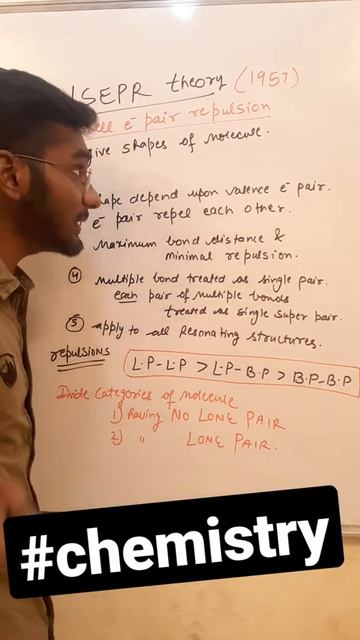 VSEPR theory (1957)
ell e⁻ pair repulsion
ive shapes of molecule.
hape depend upon valence e⁻ pair.
e⁻ pair repel each other.
Maximum bond distance &
minimal repulsion.
④ multiple bond treated as single pair.
each pair of multiple bonds
treated as single super pair.
⑤ apply to all Resonating structures.
repulsions L.P-L.P > L.P-B.P > B.P-B.P
Divide Categories of molecule
1) having NO LONE PAIR
2) " LONE PAIR.
#chemistry